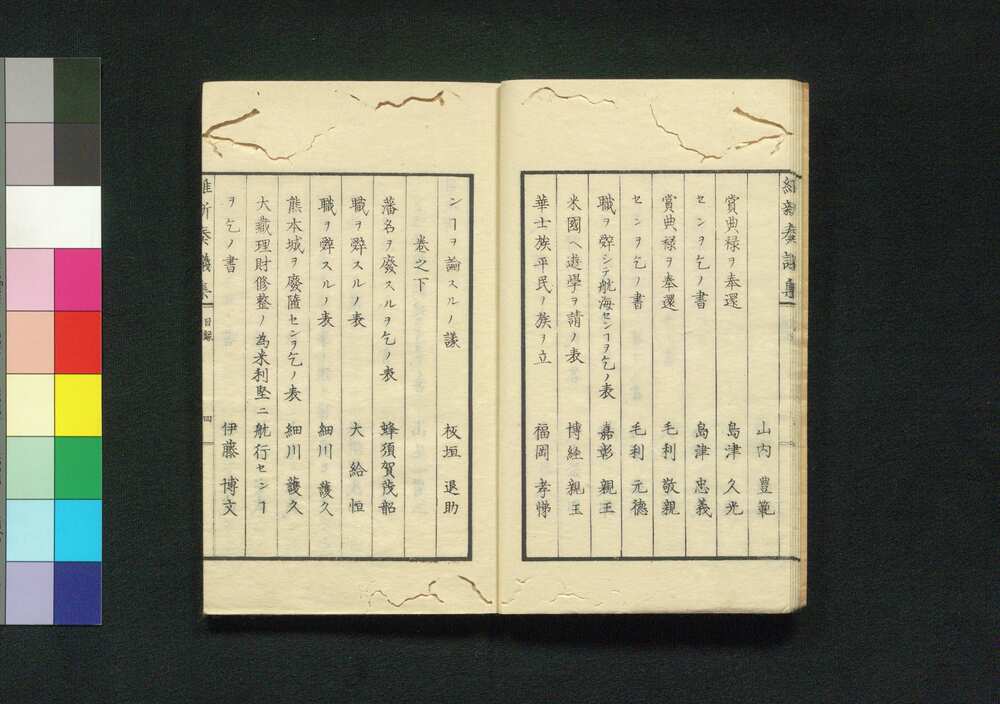 維新奏議集
山内 豊範
賞典禄ヲ奉還 島津 久光
センヿヲ乞ノ書 島津 忠義
賞典禄ヲ奉還 毛利 敬親
センヿヲ乞ノ書 毛利 元德
職ヲ辤シテ航海センヿヲ乞ノ表 嘉彰 親王
米國ヘ遊學ヲ請ノ表 博経 親王
華士族平民ノ族ヲ立 福岡 孝悌
ンヿヲ論スルノ議 板垣 退助
卷之下
藩名ヲ廢スルヲ乞ノ表 蜂須賀茂韶
職ヲ辤スルノ表 大 給 恒
職ヲ辤スルノ表 細川 護久
熊本城ヲ廢隳センヿヲ乞ノ表 細川 護久
大藏理財修整ノ為米利堅ニ航行センヿ
ヲ乞ノ書 伊藤 博文
維新奏議集 目録 四